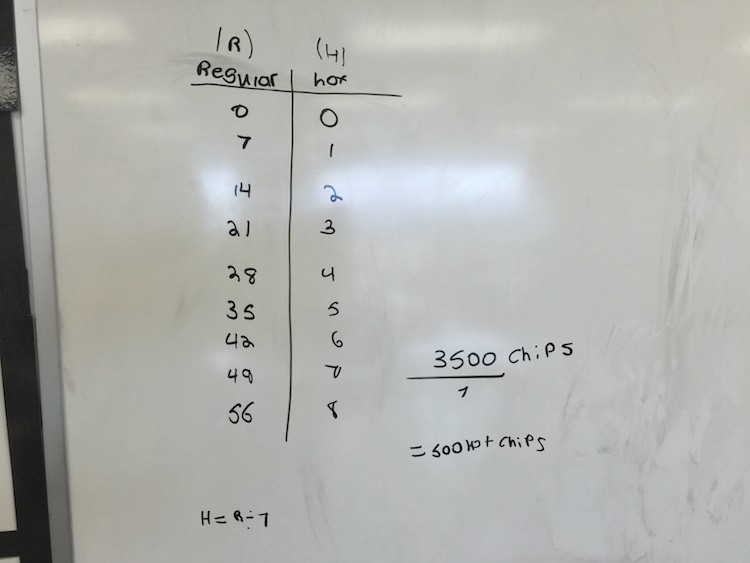 (R) (H)
Regular hot
0 0
7 1
14 2
21 3
28 4
35 5
42 6
49 7
56 8
3500 chips
7
= 500 Hot chips
H = R ÷ 7